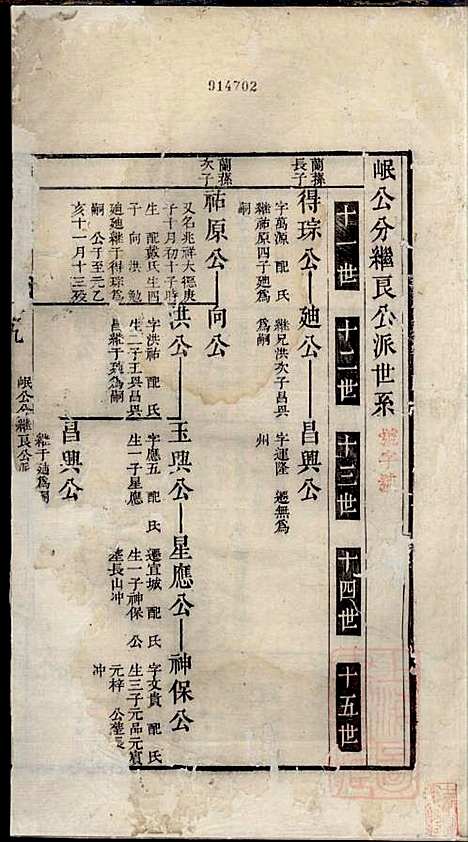 914702
岷公分繼良公派世系
十一世
十二世
十三世
十四世
十五世
蘭孫
長子
得琮公
廸公
昌興公
字萬源 配 氏
繼祐原四子廸爲
嗣
繼兄洪次子昌興
爲嗣
字運隆 遷無爲
州
蘭孫
次子
祐原公
向公
又名兆祥大德庚
子十月初十子時
生 配戴氏生四
子 向 洪 勉
廸廸繼于得琮爲
嗣 公子至元乙
亥十一月十三歿
洪公
玉興公
星應公
神保公
字洪祐 配 氏
生二子玉興昌興
昌繼于廸爲嗣
字應五 配 氏
生一子星應
遷宜城 配 氏
生一子神保 公
塟長山冲
字文貴 配 氏
生三子元品元寶
元梓 公塟長
冲
昌興公
繼于廸爲嗣
岷公分繼良公派